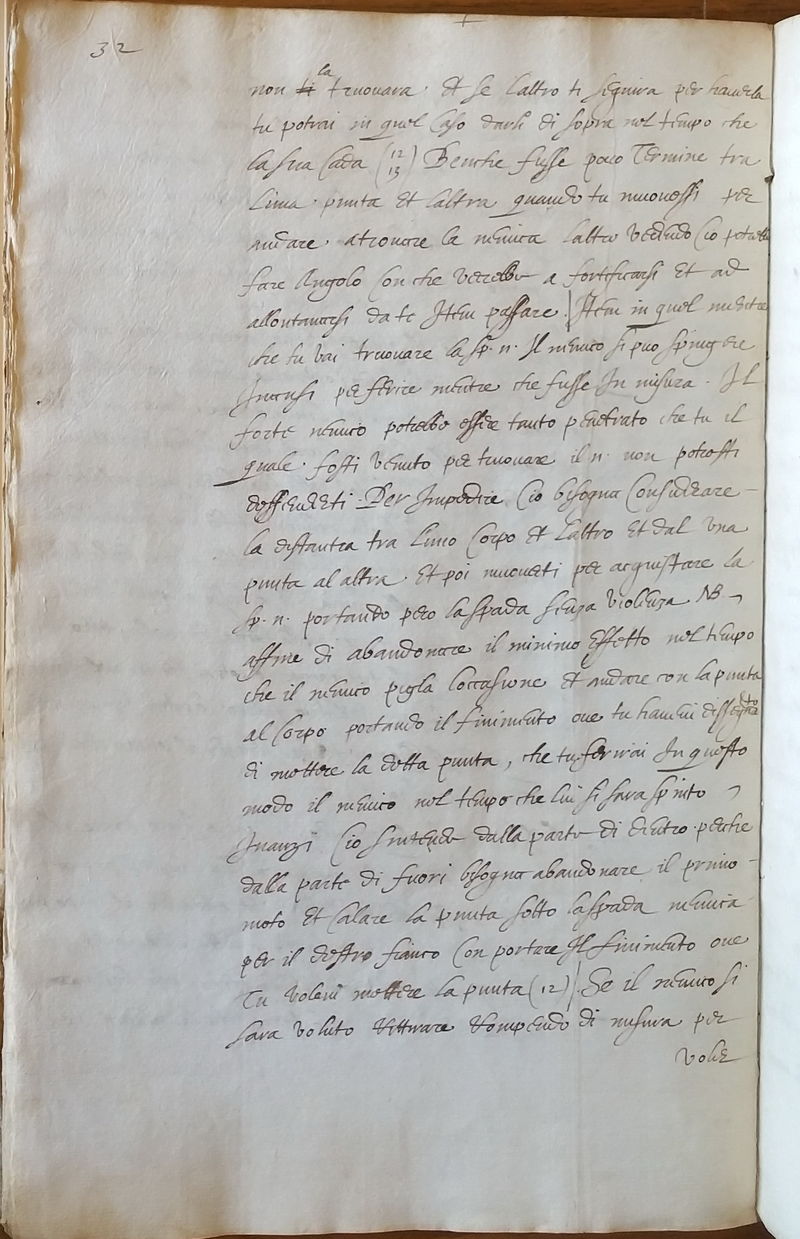 32
non ti la truovara. Et se laltro ti seguira per haverla
tu potrai in quel caso darli di sopra nel tempo che
la sua cada (12 13) Benche fusse poco Termine tra
luna punta et laltra quando tu muovessi per
andare atrovare la nemica laltro vedendo cio potrebbe
fare Angolo con che verebbe a fortificarsi Et ad
allontanarsi da te Item passare. | Item in quel mentre
che tu vai truovare la sp. n. Il nemico si puo spingere
Inansi per ferire mentre che fusse In misura. Il
forte nemico potrebbe essere tanto penetrato che tu il
quale fosti venuto per truovare il n. non potresti
deffenderti. Per Impedire Cio bisogna Considerare
la distantia tra luno Corpo Et Laltro Et dal una
punta al altra. Et poi muoverti per acquistare la
sp. n. portando pero la spada senza violenza NB
affine di abandonare il minimo Effetto nel tempo
che il nemico pigla loccasione Et andare con la punta
al Corpo portando il finimento ove tu havevi dissegnato
di mettere la detta punta, che tu ferirai In questo
modo il nemico nel tempo che lui si sara spinto
Inanzi Cio sintende dalla parte di dentro perche
dalla parte di fuori bisogna abandonare il primo
moto Et Calare la punta sotto la spada nemica
per il destro fianco Con portare Il finimento ove
Tu volevi mettere la punta (12) |. Se il nemico si
sara voluto Rittirare Rompendo di misura per